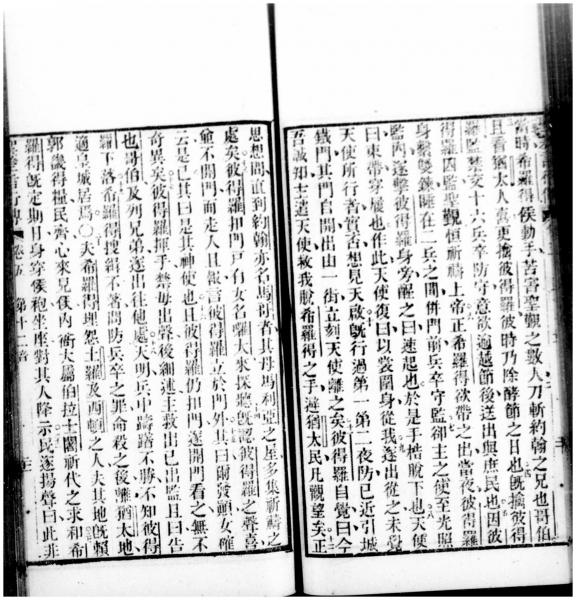 當時希羅得侯動手苦害聖觀之數人刀斬約翰之兄也哥伯
且看猶太人喜更擒彼得羅彼時乃除酵節之日也旣擒彼得
羅監禁交十六兵卒防守意欲過越節後送出與庶民也因彼
得羅囚監聖觀恒祈禱上帝正希羅得欲帶之出當夜彼得羅
身繫雙鍊睡在二兵之間併門前兵卒守監卻主之使至光照
監內遂擊彼得羅身旁醒之曰速起也於是手梏脫下也天使
曰束帶穿屨也作此天使復曰以裳圍身從我遂出從之未覺
天使所行者實否想見天啟旣行過第一第二夜防已近引城
鐵門其門自開出由一街立刻天使離之矣彼得羅自覺曰今
吾誠知主遣天使救我脫希羅得之手猶太民凡觀望矣正
思想間直到約翰亦名馬可者其母馬利亞之屋多集祈禱之
處矣彼得羅扣門戶有女名囉大來探聽旣認彼得羅之聲喜
而不開門而走入且報言彼得羅立於門外其曰爾發顚女確
云是已其曰是其神使也且彼得羅仍扣門遂開門看之無不
奇異矣彼得羅揮手禁毋出聲後細述主救出己出監且曰告
也哥伯及列兄弟遂出往他處天明兵中躊躇不勝不知彼得
羅下落希羅得搜緝不著問防兵卒之罪命殺之後離猶太地
適皇城居焉○夫希羅得埋怨土羅及西頓之人夫其地旣賴
郭畿得糧民齊心來見侯內衛大屬伯拉士圖祈代之求和希
羅得旣定期日身穿侯袍坐座對其人降示民遂揚聲曰此非
卷五 第十二章